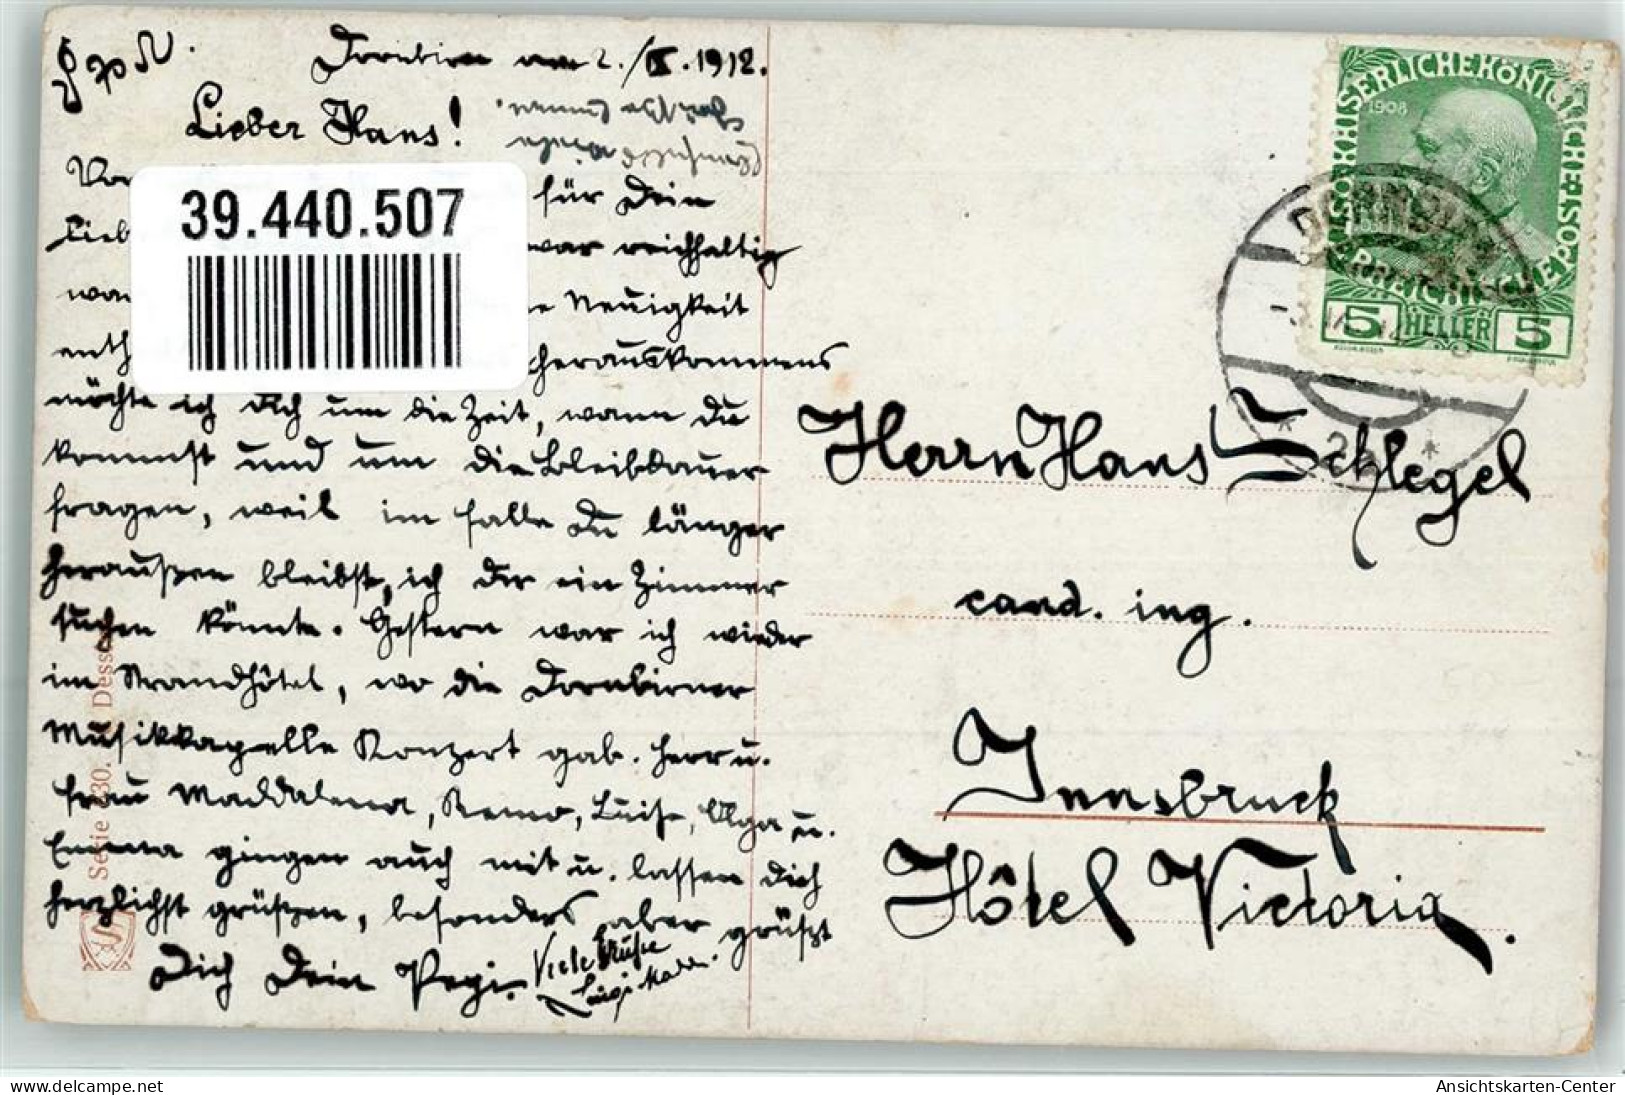 Dornbirn am 2./IX.1912.
Lieber Hans!
39.440.507
Vor
für Dein
Lieb
war reichhaltig
wa
e Neuigkeit
enth
herauskommens
möchte ich Dich um die Zeit, wann Du
kommst und um die Bleibdauer
fragen, weil im Falle Du länger
heraußen bleibst, ich Dir ein Zimmer
suchen könnte. Gestern war ich wieder
im Strandhôtel, wo die Dornbirner
Musikkapelle Konzert gab. Herr u.
Frau Maddalena, Remo, Luise, Olga u.
Emma gingen auch mit u. lassen Dich
herzlichst grüßen, besonders aber grüßt
Dich Dein Pepi.
Viele Grüße
Luigi Madd.
Serie 730. Dess
KAISERLICHE KÖNIGLICHE ÖSTERREICHISCHE POST
1908
5 HELLER 5
DORNBIRN
Herrn Hans Schlegel
cand. ing.
Innsbruck
Hôtel Victoria.
https://www.delcampe.net
Ansichtskarten-Center